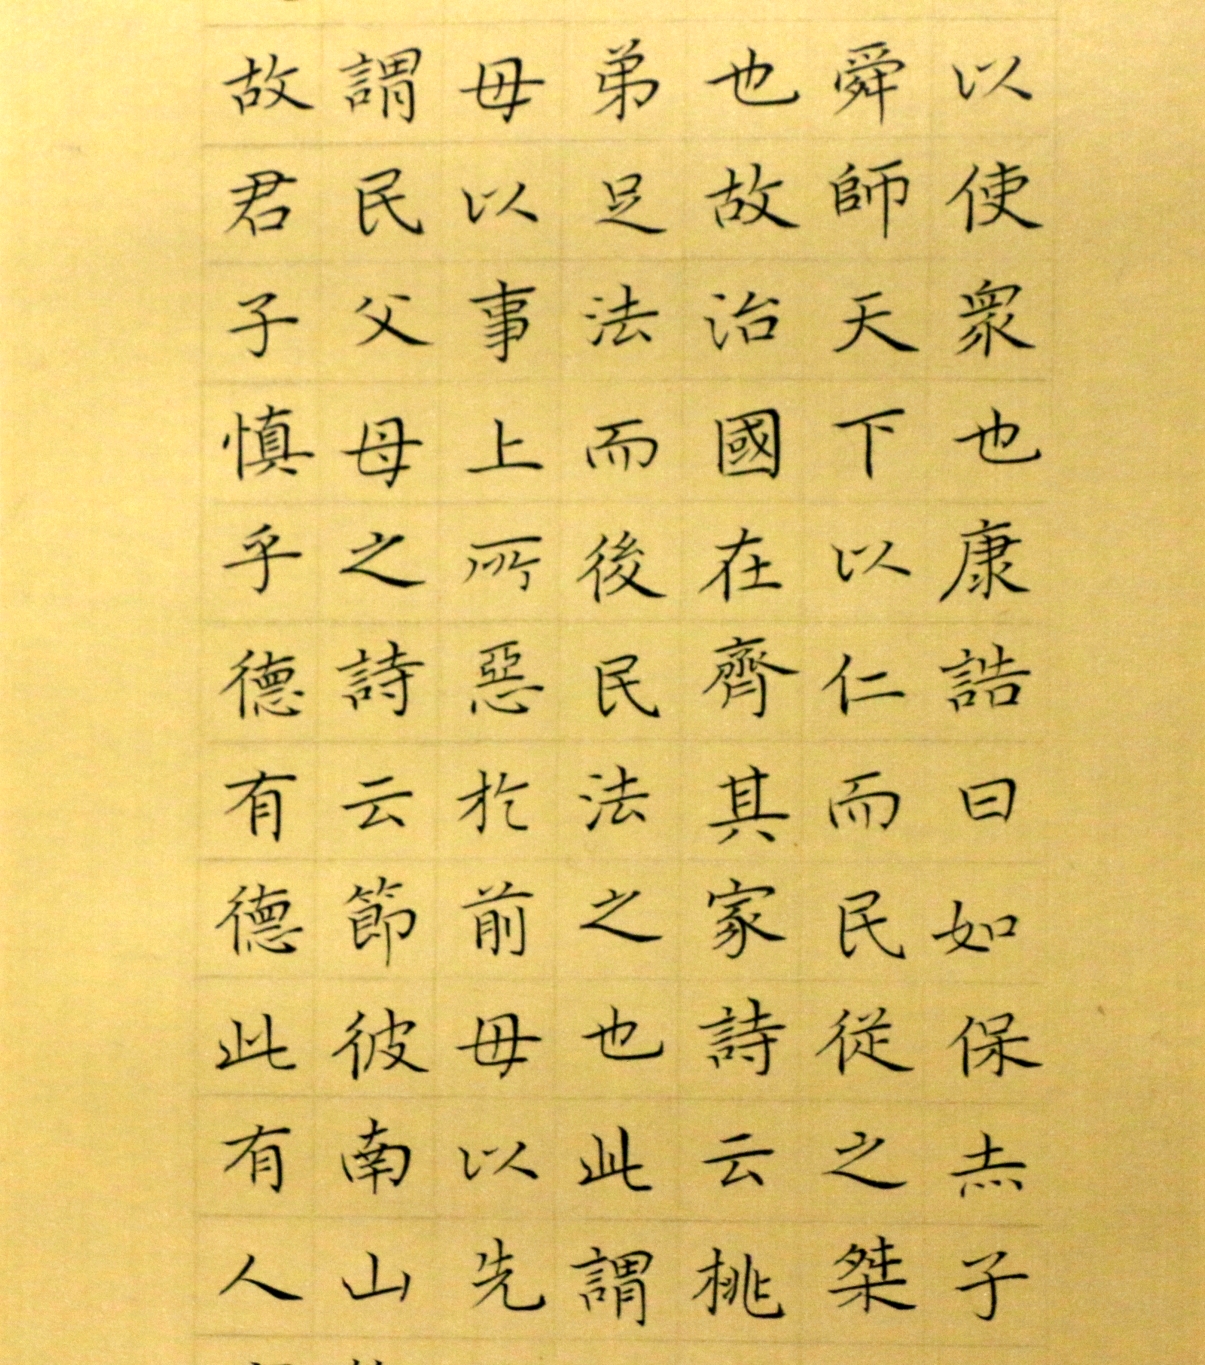 以使衆也康誥曰如保赤子
舜師天下以仁而民從之桀
也故治國在齊其家詩云桃
弟足法而後民法之也此謂
毋以事上所惡於前毋以先
謂民父母之詩云節彼南山
故君子慎乎德有德此有人